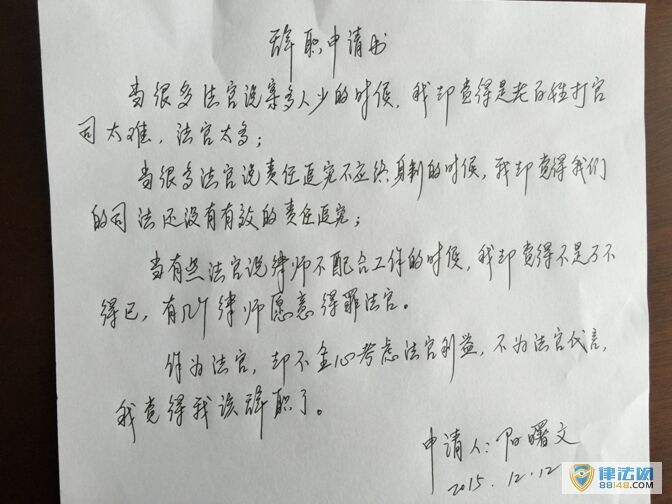 辞职申请书
当很多法官说案多人少的时候，我却觉得是老百姓打官
司太难，法官太多；
当很多法官说责任追究不应终身制的时候，我却觉得我们
的司法还没有有效的责任追究；
当有些法官说律师不配合工作的时候，我却觉得不是万不
得已，有几个律师愿意得罪法官。
作为法官，却不全心考虑法官利益，不为法官代言，
我觉得我该辞职了。
申请人：阳曙文
2015.12.12
律法网
88148.com